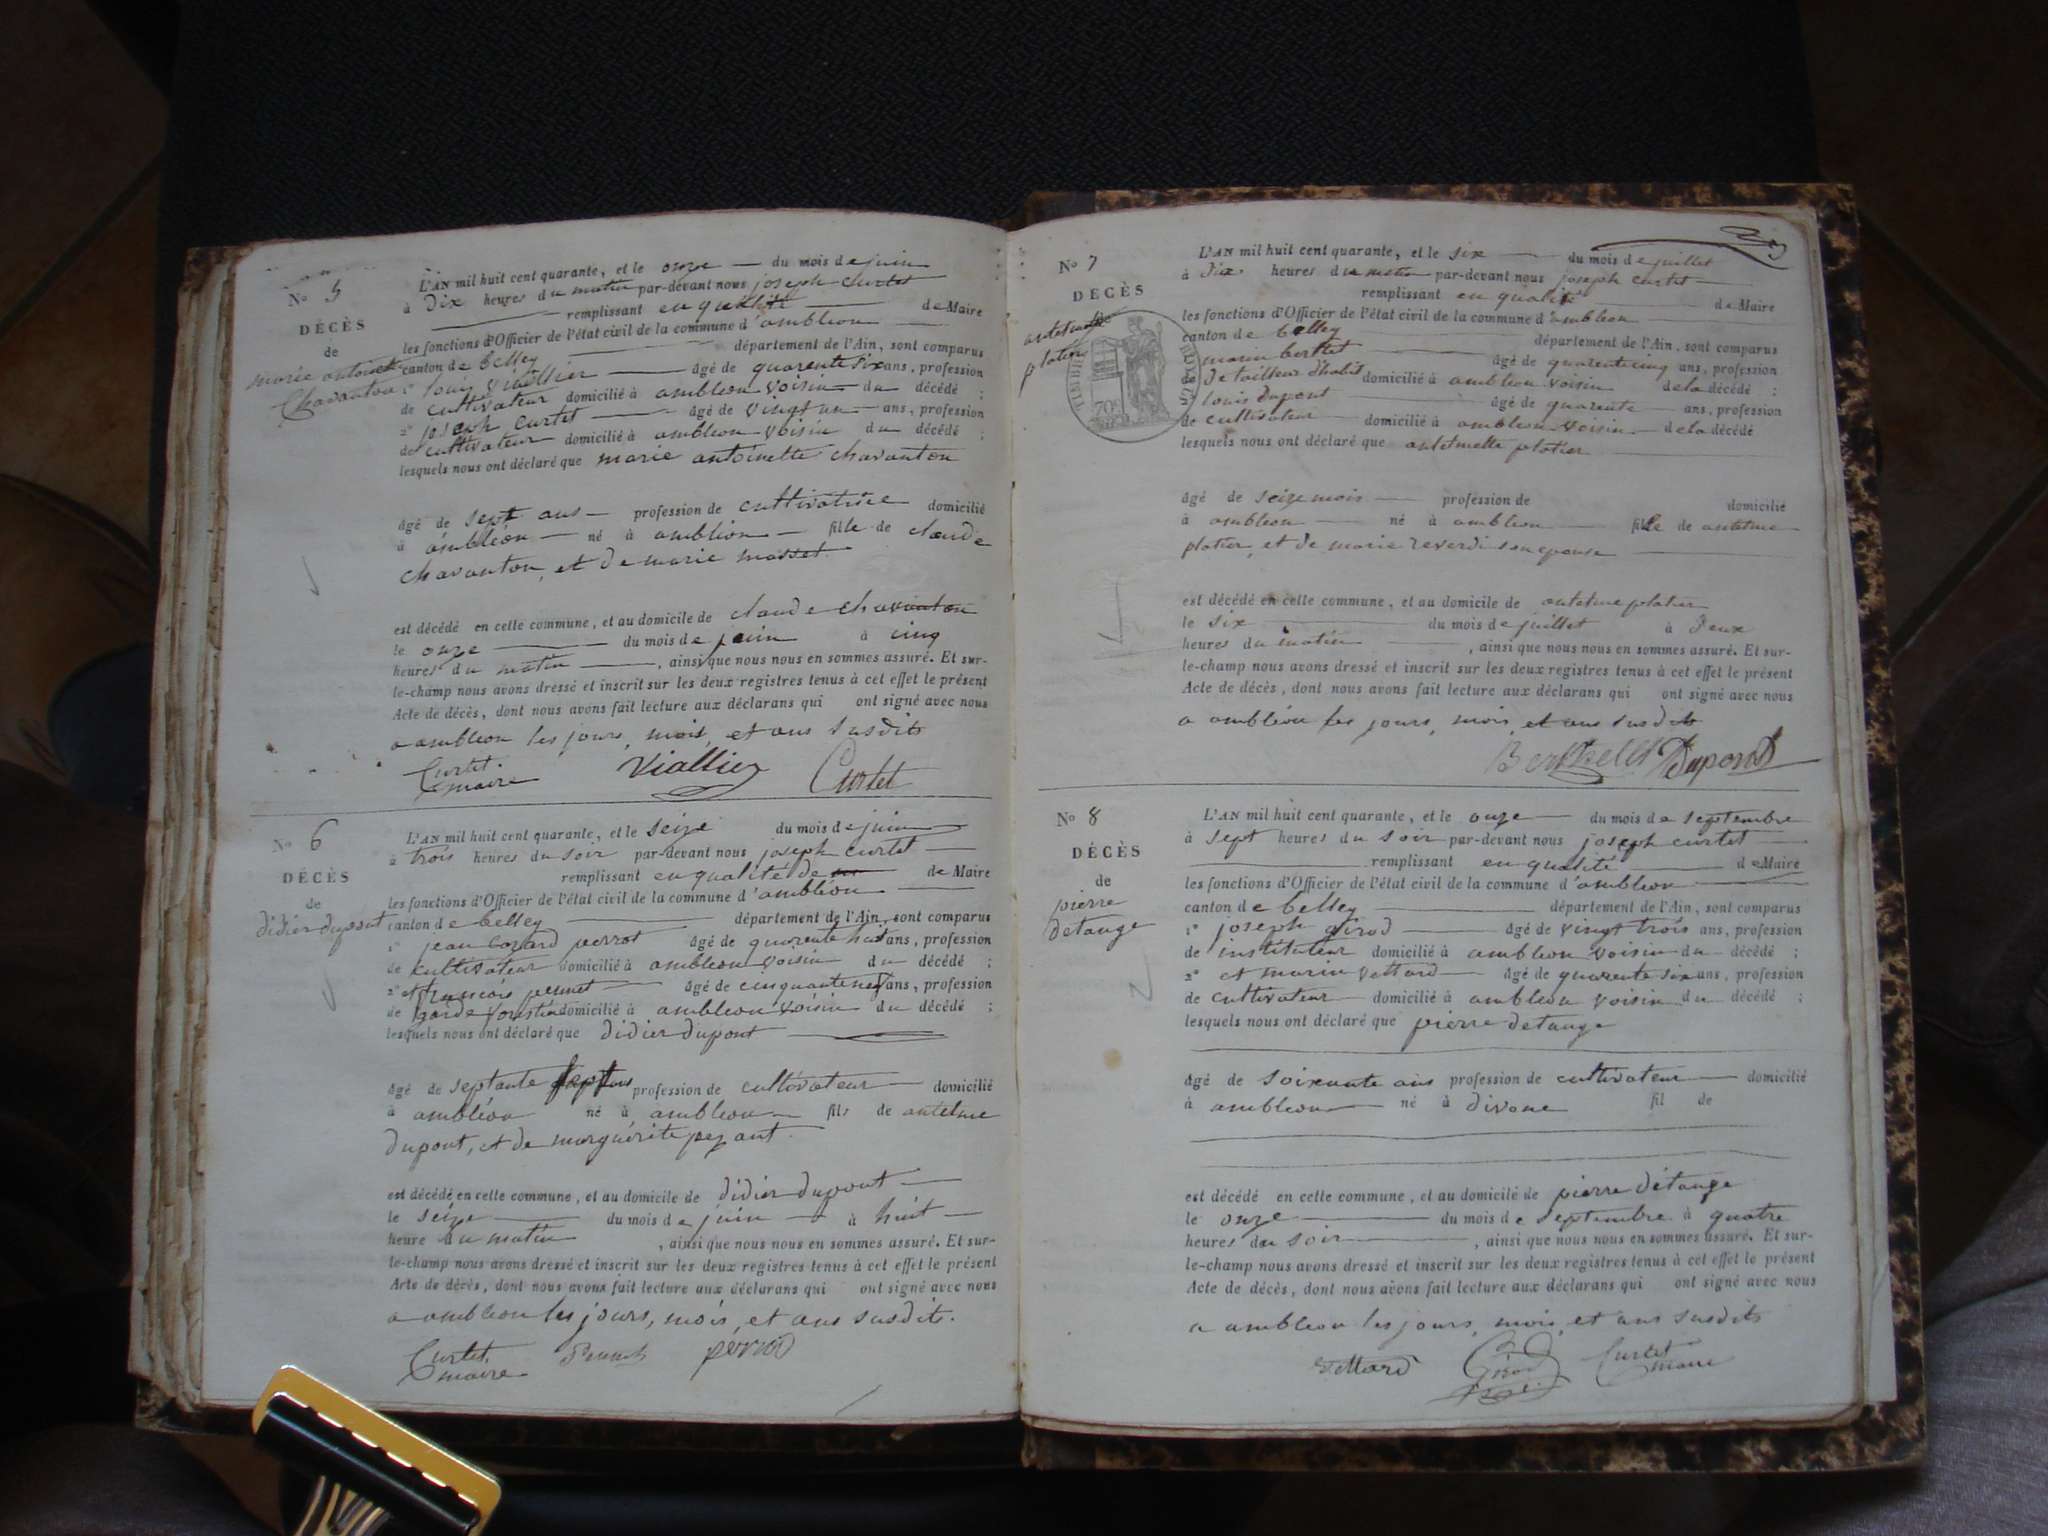 No 5
DÉCÈS
de
marie antoinette
Chavanton
L'AN mil huit cent quarante, et le onze du mois de juin
à Dix heures du matin par-devant nous joseph curtet
remplissant en qualité de Maire
les fonctions d'Officier de l'état civil de la commune d'ambléon
canton de belley département de l'Ain, sont comparus
1° louis viallier âgé de quarente six ans, profession
de cultivateur domicilié à ambleon voisin du décédé ;
2° joseph curtet âgé de vingt un ans, profession
de cultivateur domicilié à ambleon voisin du décédé ;
lesquels nous ont déclaré que marie antoinette chavanton
âgé de sept ans profession de cultivatrice domicilié
à ambléon né à ambléon fille de claude
chavanton, et de marie masset
est décédé en celle commune, et au domicile de claude chavanton
le onze du mois de juin à cinq
heures du matin, ainsi que nous nous en sommes assuré. Et sur-
le-champ nous avons dressé et inscrit sur les deux registres tenus à cet effet le présent
Acte de décès, dont nous avons fait lecture aux déclarans qui ont signé avec nous
a ambleon les jours, mois, et ans susdits
Curtet maire Viallier Curtet
No 6
DÉCÈS
de
didier dupont
L'AN mil huit cent quarante, et le seize du mois de juin
à trois heures du soir par-devant nous joseph curtet
remplissant en qualité de de Maire
les fonctions d'Officier de l'état civil de la commune d'ambléon
canton de belley département de l'Ain, sont comparus
1° jean cozard perrot âgé de quarente huit ans, profession
de cultivateur domicilié à ambleon voisin du décédé ;
2° et françois pennet âgé de cinquante neuf ans, profession
de garde forestier domicilié à ambleon voisin du décédé ;
lesquels nous ont déclaré que didier dupont
âgé de septante sept ans profession de cultivateur domicilié
à ambléon né à ambleon fils de antelme
dupont, et de marguérite pezant.
est décédé en celle commune, et au domicile de didier dupont
le seize du mois de juin à huit
heure du matin, ainsi que nous nous en sommes assuré. Et sur-
le-champ nous avons dressé et inscrit sur les deux registres tenus à cet effet le présent
Acte de décès, dont nous avons fait lecture aux déclarans qui ont signé avec nous
a ambleon les jours, mois, et ans susdits.
Curtet maire Pennet perrod
No 7
DÉCÈS
de
antelmette
platier
L'AN mil huit cent quarante, et le six du mois de juillet
à Dix heures du matin par-devant nous joseph curtet
remplissant en qualité de Maire
les fonctions d'Officier de l'état civil de la commune d'ambleon
canton de belley département de l'Ain, sont comparus
marin berthet âgé de quarente cinq ans, profession
de tailleur d'habit domicilié à ambleon voisin de la décédé ;
louis dupont âgé de quarente ans, profession
de cultivateur domicilié à ambleon voisin de la décédé
lesquels nous ont déclaré que antelmette platier
âgé de seize mois profession de domicilié
à ambleon né à ambleon fille de antelme
platier, et de marie reverdi son epouse
est décédé en celle commune, et au domicile de antelme platier
le six du mois de juillet à Deux
heures du matin, ainsi que nous nous en sommes assuré. Et sur-
le-champ nous avons dressé et inscrit sur les deux registres tenus à cet effet le présent
Acte de décès, dont nous avons fait lecture aux déclarans qui ont signé avec nous
a ambléon les jours, mois, et ans susdits
Berthellet Dupont
No 8
DÉCÈS
de
pierre
detange
L'AN mil huit cent quarante, et le onze du mois de septembre
à sept heures du soir par-devant nous joseph curtet
remplissant en qualité de Maire
les fonctions d'Officier de l'état civil de la commune d'ambleon
canton de belley département de l'Ain, sont comparus
1° joseph girod âgé de vingt trois ans, profession
de instituteur domicilié à ambleon voisin du décédé ;
2° et marin vettard âgé de quarente six ans, profession
de cultivateur domicilié à ambleon voisin du décédé ;
lesquels nous ont déclaré que pierre detange
âgé de soixante ans profession de cultivateur domicilié
à ambleon né à divone fil de
est décédé en celle commune, et au domicile de pierre détange
le onze du mois de septembre à quatre
heures du soir, ainsi que nous nous en sommes assuré. Et sur-
le-champ nous avons dressé et inscrit sur les deux registres tenus à cet effet le présent
Acte de décès, dont nous avons fait lecture aux déclarans qui ont signé avec nous
a ambleon les jours, mois, et ans susdits
Vettard Girod Curtet maire